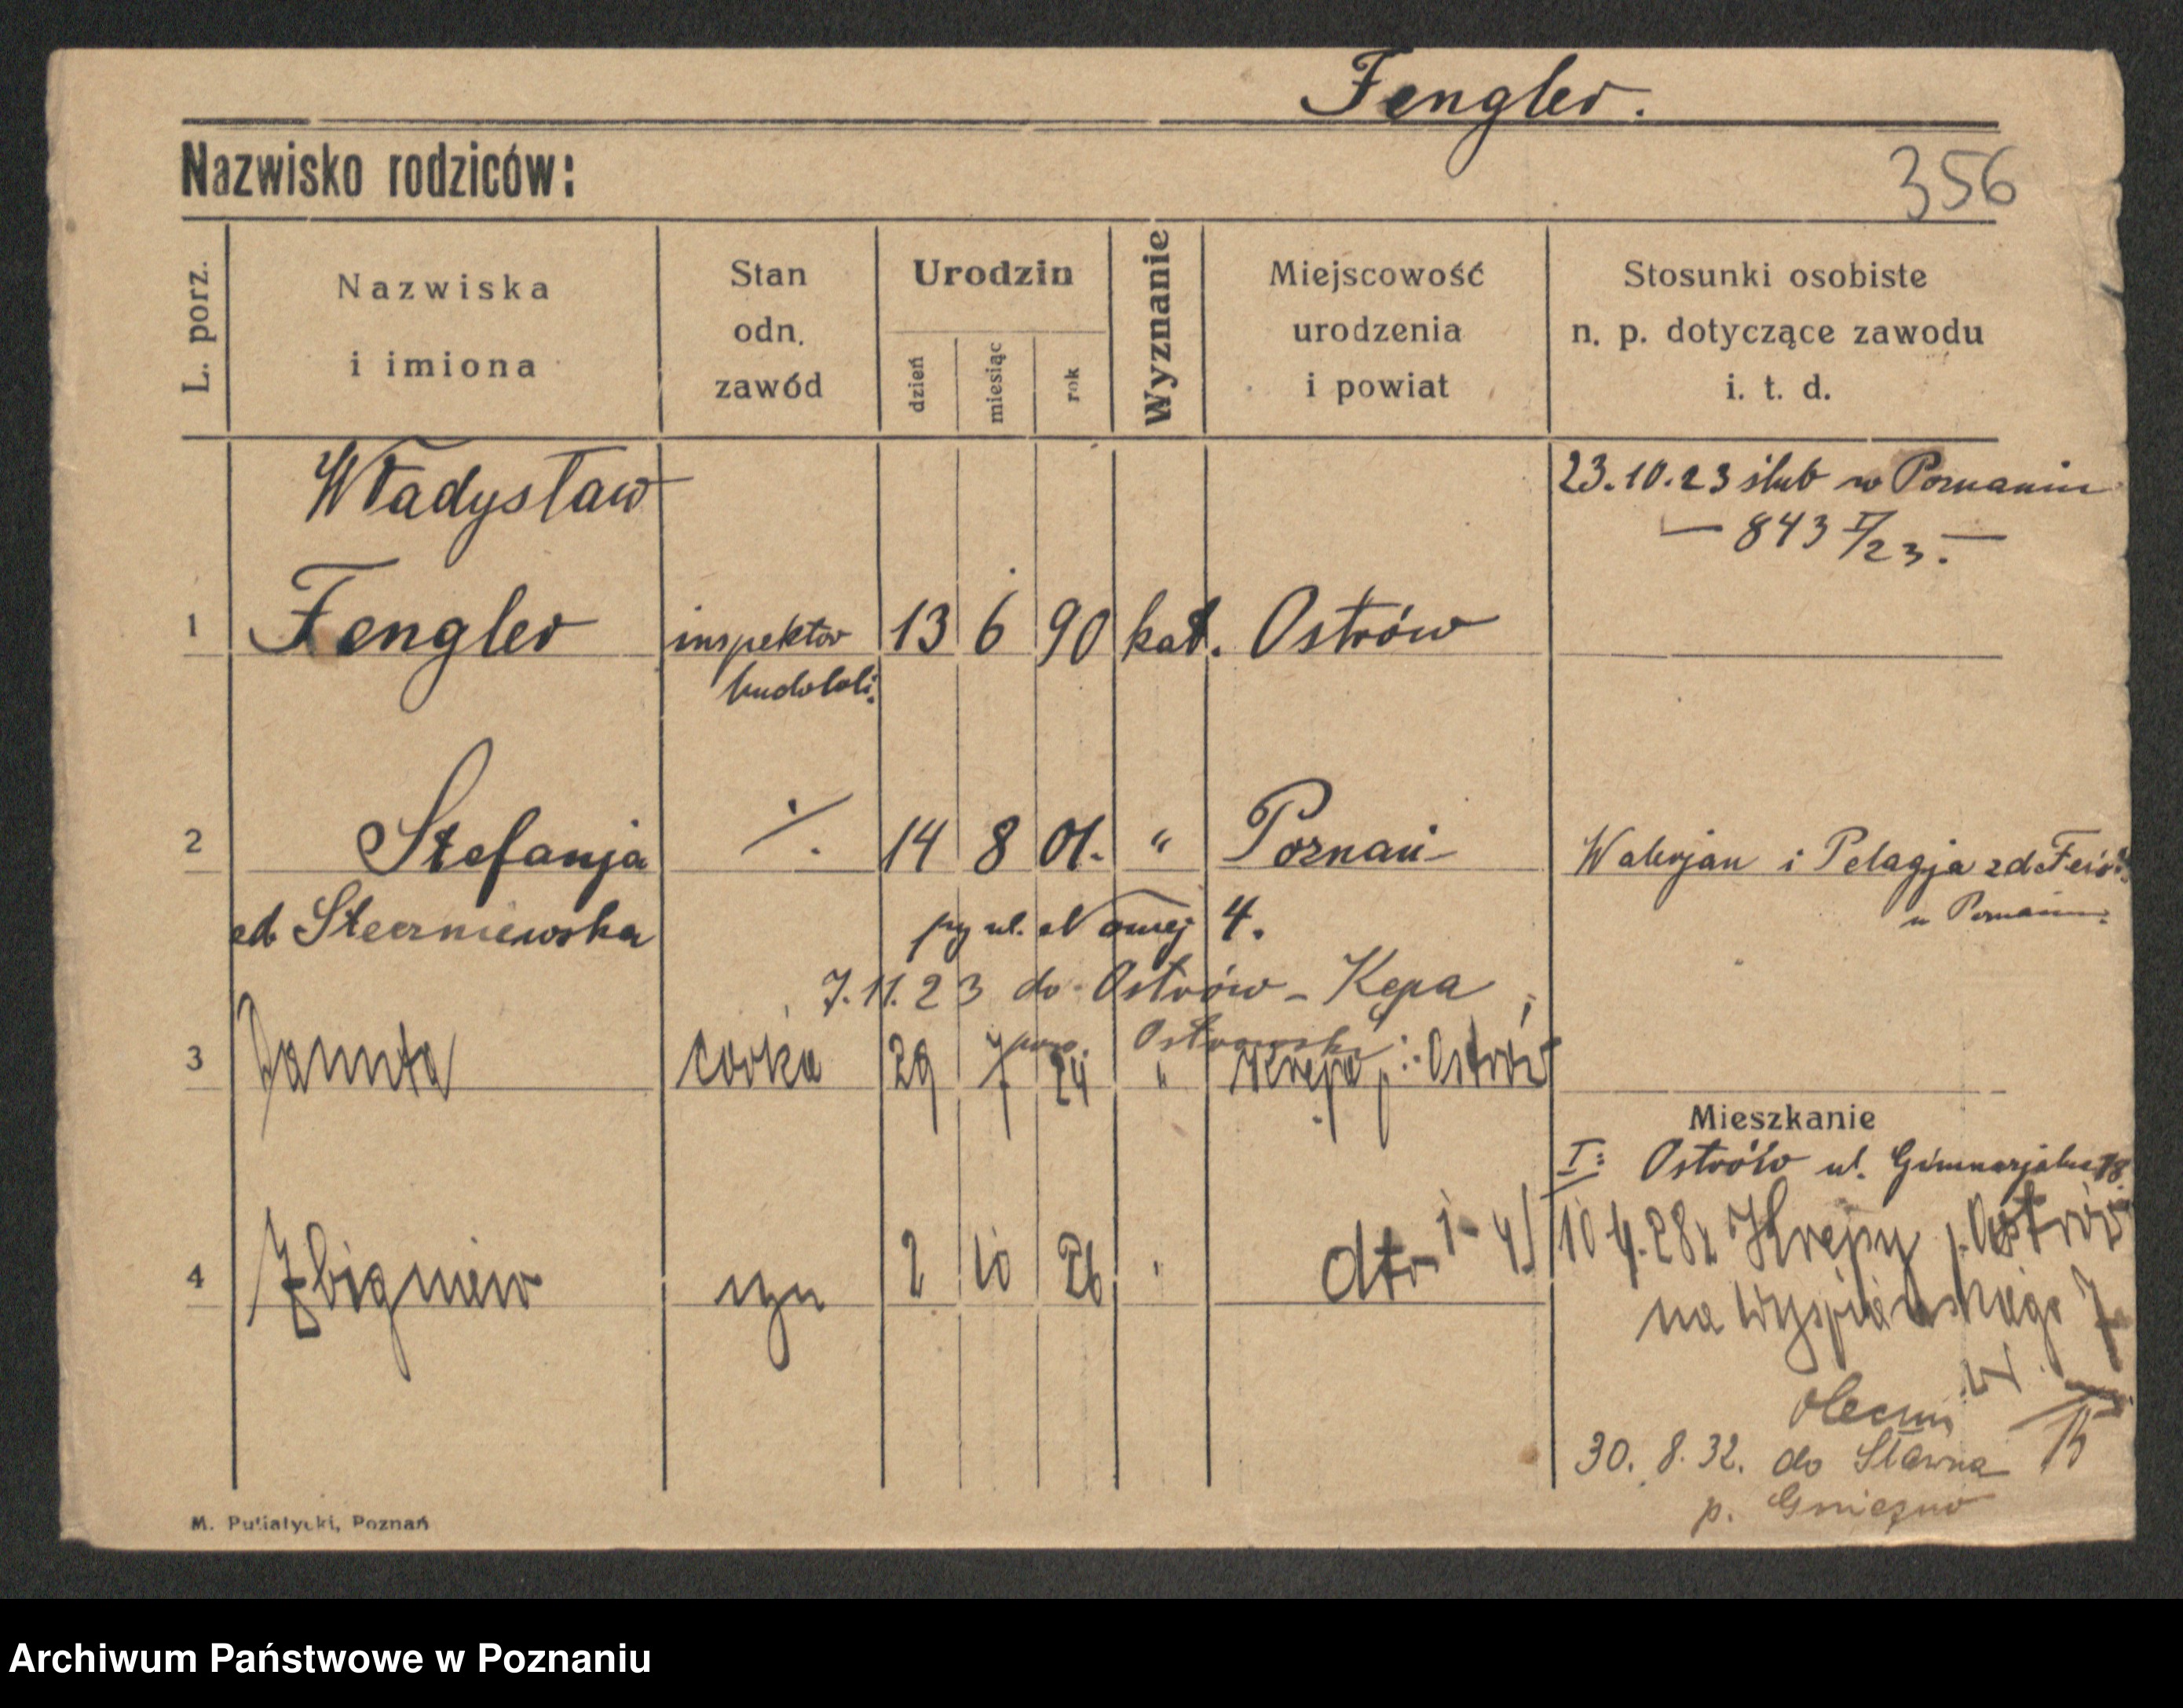 Fengler.
Nazwisko rodziców:
356
L. porz.
Nazwiska
i imiona
Stan
odn.
zawód
Urodzin
dzień
miesiąc
rok
Wyznanie
Miejscowość
urodzenia
i powiat
Stosunki osobiste
n. p. dotyczące zawodu
i. t. d.
Władysław
23.10.23 ślub w Poznaniu
— 843 I/23. —
1 Fengler inspektor 13 6 90 kat. Ostrów
2 Stefanja ./. 14 8 01. " Poznań
Walerjan i Pelagja zd
w Poznaniu.
zd Steerniewska
przy ul. Nowej 4.
7.11.23 do Ostrów - Kępa
pow. Ostrowski
3 Danuta córka 29 7 24 " Krępa p. Ostrów
Mieszkanie
I: Ostrów ul. Gimnazjalna 18
4 Zbigniew syn 2 10 26 " dto
1-4
10 4.28 z Krępy p. Ostrów
na Wyspiańskiego 7
obecnie
30. 8. 32. do Sławna
p. Gniezno
M. Putiatycki, Poznań
Archiwum Państwowe w Poznaniu